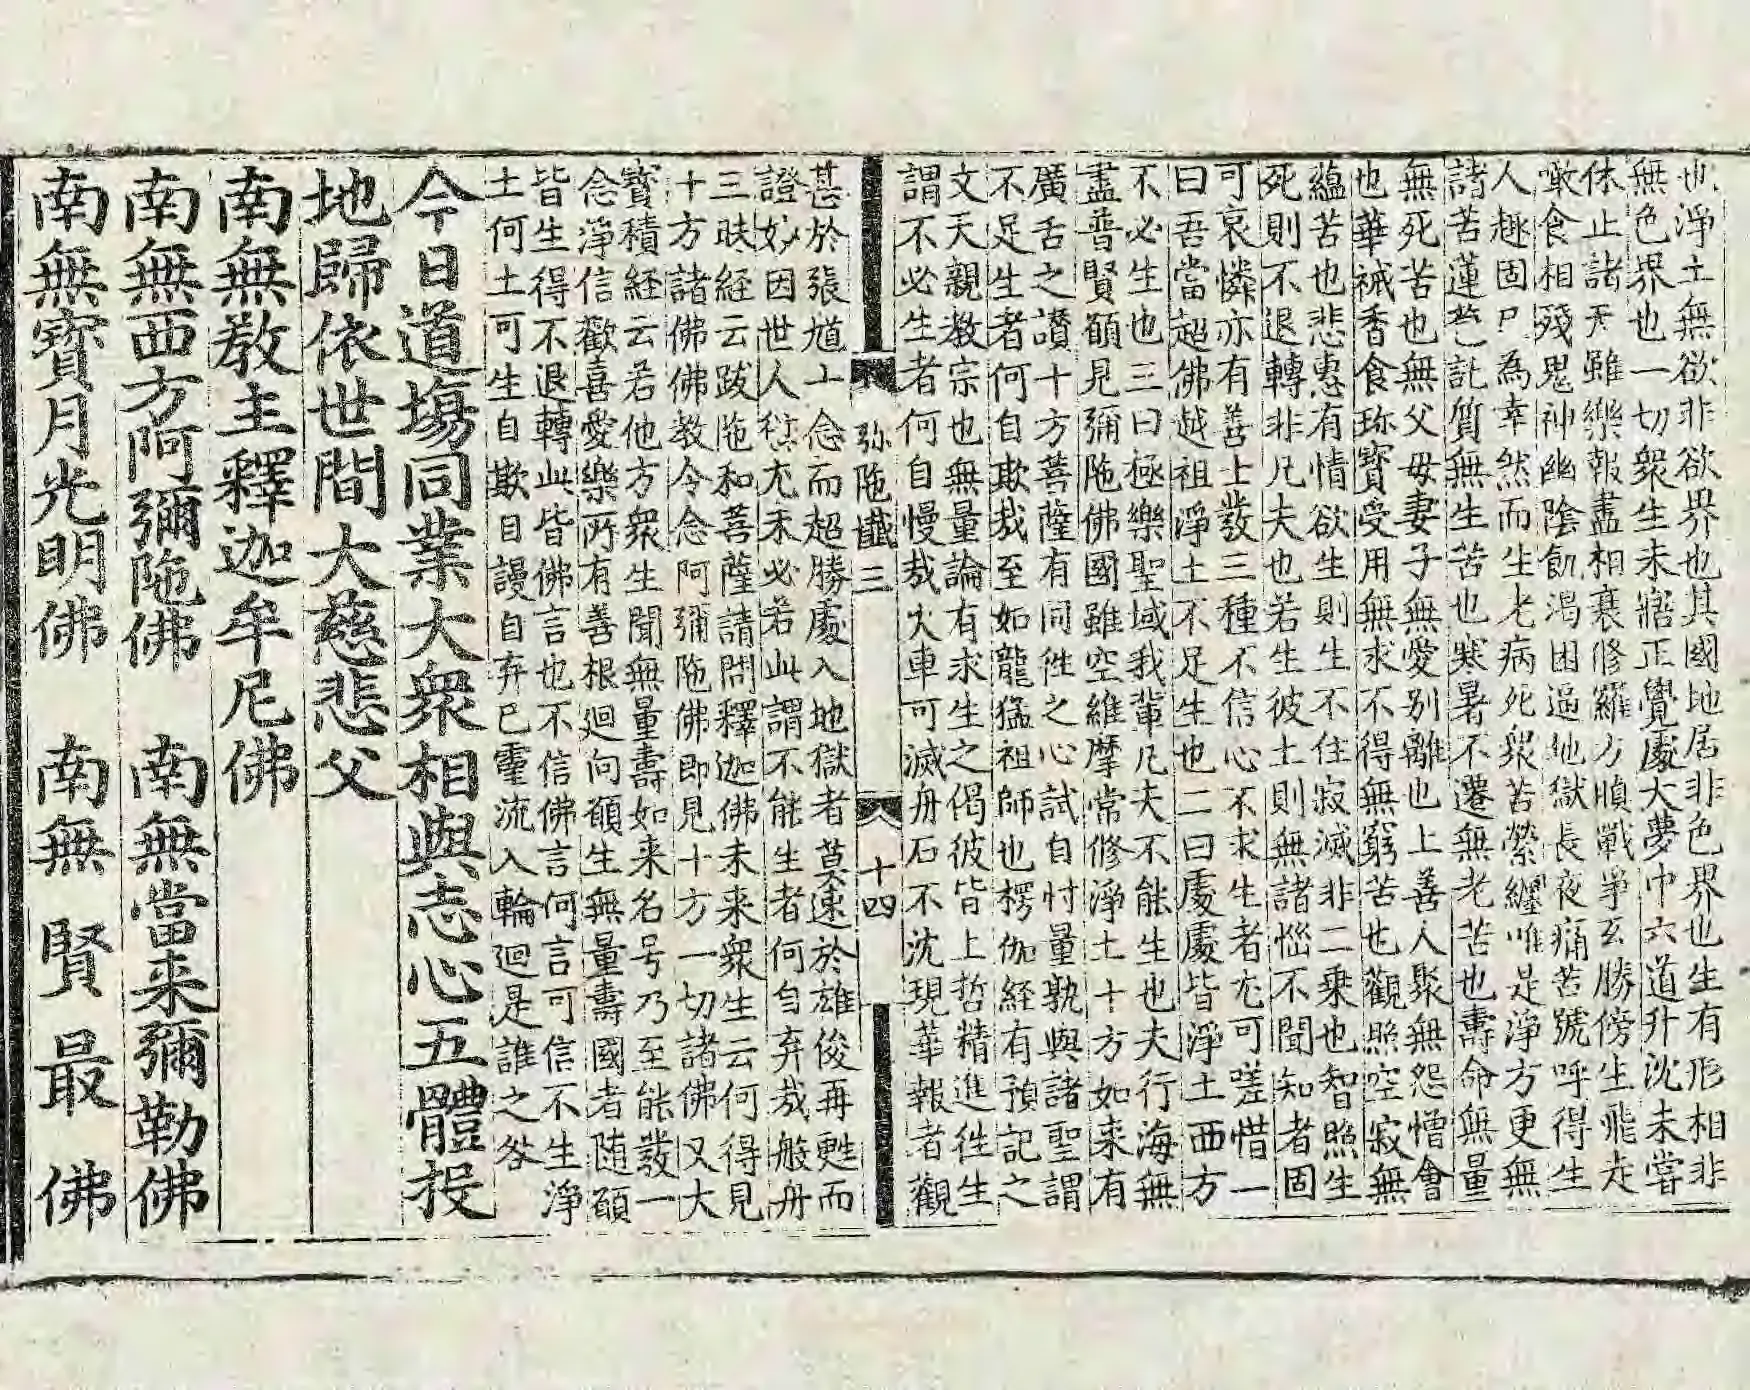 也淨土無欲非欲界也其國地居非色界也生有形相非
無色界也一切衆生未寤正覺處大夢中六道升沈未嘗
休止諸天雖樂報盡相衰修羅方瞋戰爭互勝傍生飛走
噉食相殘鬼神幽陰飢渴困逼地獄長夜痛苦號呼得生
人趣固已為幸然而生老病死衆苦縈纏唯是淨方更無
諸苦蓮苞託質無生苦也寒暑不遷無老苦也壽命無量
無死苦也無父母妻子無愛別離也上善人聚無怨憎會
也華裓香食珎寶受用無求不得無窮苦也觀照空寂無
蘊苦也悲惠有情欲生則生不住寂滅非二乘也智照生
死則不退轉非凡夫也若生彼土則無諸惱不聞知者固
可哀憐亦有善士發三種不信心不求生者尤可嗟惜一
曰吾當超佛越祖淨土不足生也二曰處處皆淨土西方
不必生也三曰極樂聖域我輩凡夫不能生也夫行海無
盡普賢願見彌陁佛國雖空維摩常修淨土十方如来有
廣舌之讃十方菩薩有同徃之心試自忖量孰與諸聖謂
不足生者何自欺㦲至如龍猛祖師也楞伽経有預記之
文天親教宗也無量論有求生之偈彼皆上哲精進徃生
謂不必生者何自慢㦲火車可滅舟石不沈現華報者觀
弥陁懴三
十四
甚於張馗十念而超勝處入地獄者莫速於雄俊再甦而
證妙因世人愆尤未必若此謂不能生者何自弃㦲般舟
三昧経云跋陁和菩薩請問釋迦佛未来衆生云何得見
十方諸佛佛教令念阿彌陁佛即見十方一切諸佛又大
寶積経云若他方衆生聞無量壽如来名号乃至能發一
念淨信歡喜愛樂所有善根廻向願生無量壽國者随願
皆生得不退轉此皆佛言也不信佛言何言可信不生淨
土何土可生自欺自謾自弃己靈流入輪廻是誰之咎
今日道場同業大衆相與志心五體投
地歸依世間大慈悲父
南無教主釋迦牟尼佛
南無西方阿彌陁佛　南無當来彌勒佛
南無寶月光明佛　南無賢最佛